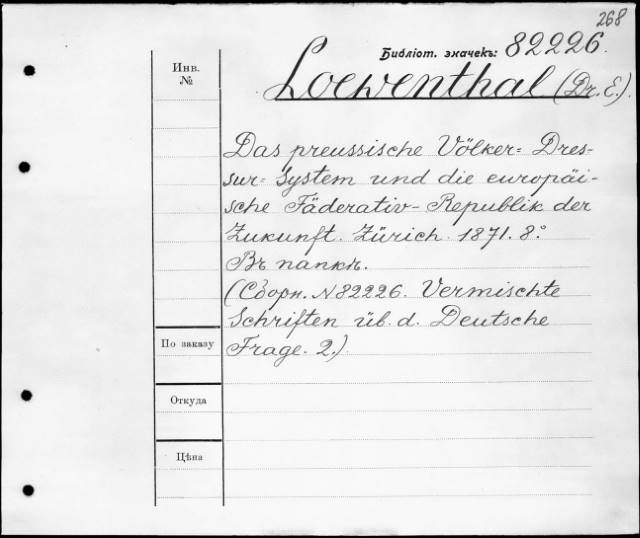 268
Библіот. значекъ: 82226.
Инв.
№
Loewenthal (Dr. E.).
Das preussische Völker= Dres-
sur= System und die europäi-
sche Fäderativ- Republik der
Zukunft. Zürich. 1871. 8.°
Въ папкѣ.
(Сборн. N 82226. Vermischte
Schriften üb. d. Deutsche
Frage. 2.)
По заказу
Откуда
Цѣна